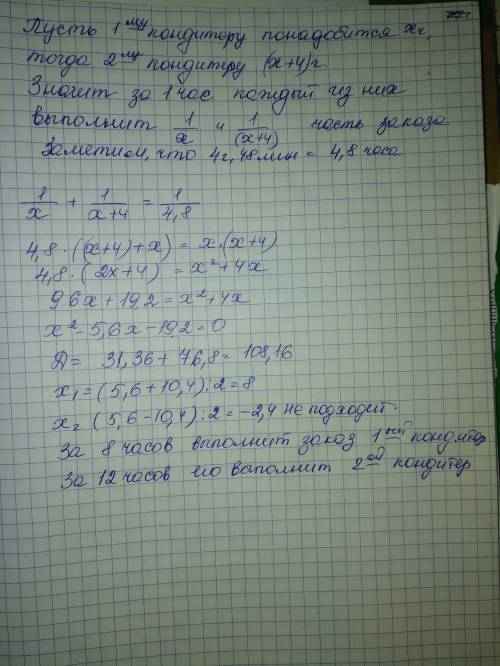 Пусть 1му кондитеру понадобится x ч,
тогда 2му кондитеру (x+4) ч.
Значит за 1 час каждый из них
выполнит 1/x и 1/(x+4) часть заказа
Заметим, что 4ч, 48 мин = 4,8 часа
1/x + 1/(x+4) = 1/4,8
4,8·((x+4)+x) = x·(x+4)
4,8·(2x+4) = x²+4x
9,6x+19,2=x²+4x
x²-5,6x-19,2=0
Д= 31,36+76,8=108,16
x₁=(5,6+10,4):2=8
x₂ (5,6-10,4):2=-2,4 не подходит.
За 8 часов выполнит заказ 1ый кондитер
За 12 часов его выполнит 2ой кондитер